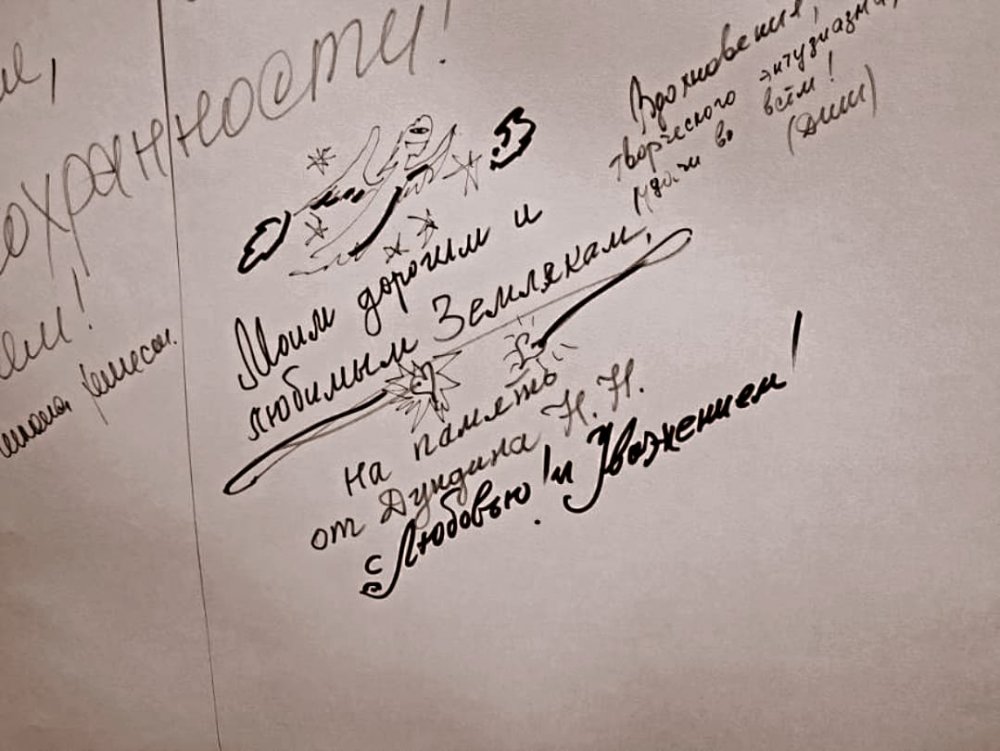 охранности!
Вдохновения,
творческого энтузиазма,
удачи во всём!
Моим дорогим и
любимым Землякам,
На память
от Дундина Н.Н.
с Любовью! и Уважением!